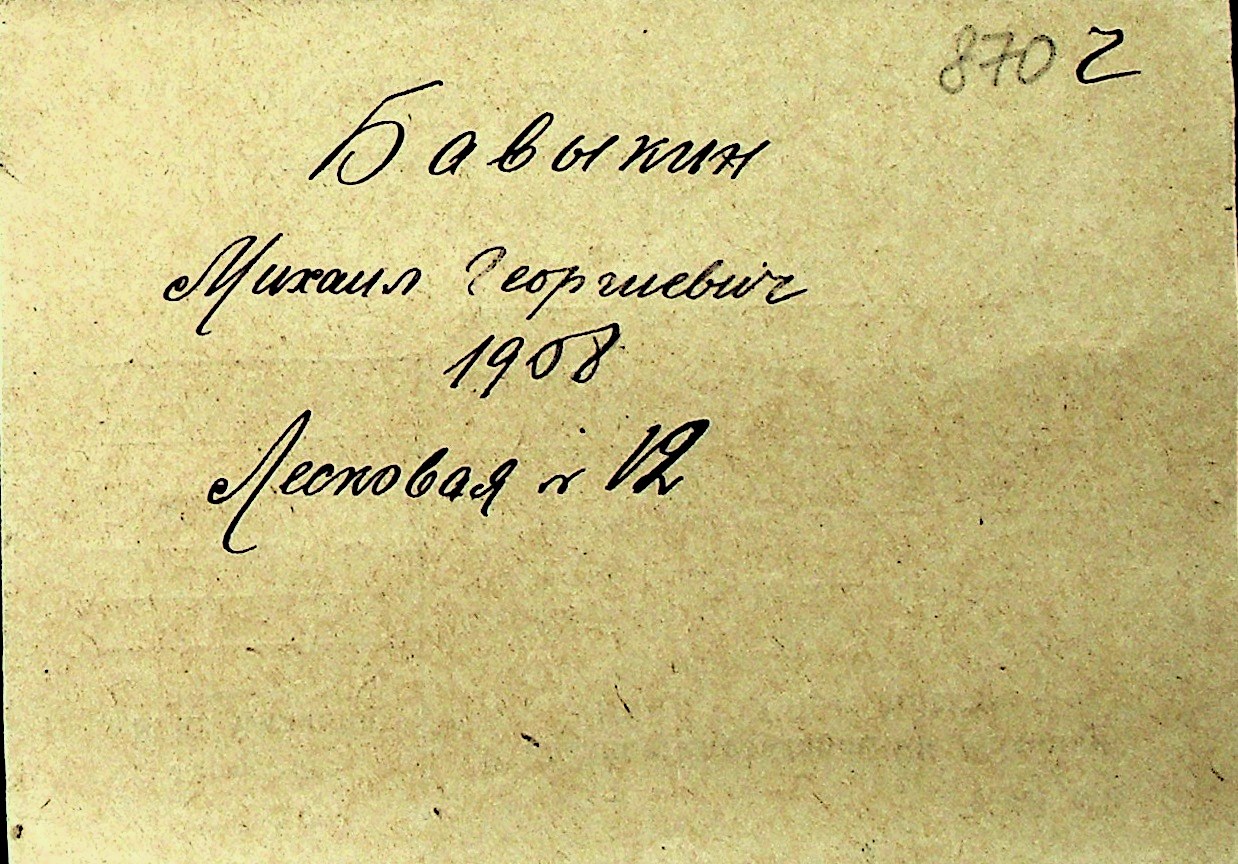 870 2
Бавыкин
Михаил Георгиевич
1908
Лесковая № 12